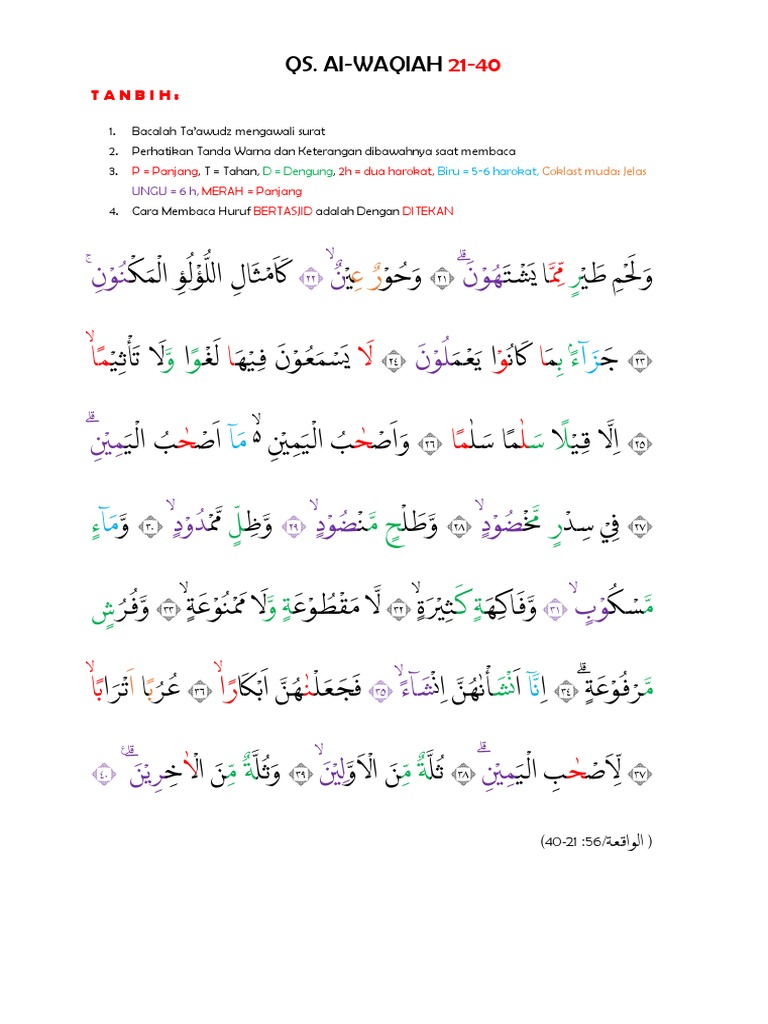 QS. Al-WAQIAH 21-40
TANBIH:
1. Bacalah Ta'awudz mengawali surat
2. Perhatikan Tanda Warna dan Keterangan dibawahnya saat membaca
3. P = Panjang, T = Tahan, D = Dengung, 2h = dua harokat, Biru = 5-6 harokat, Coklast muda: Jelas
UNGU = 6 h, MERAH = Panjang
4. Cara Membaca Huruf BERTASJID adalah Dengan DI TEKAN
وَلَحْمِ طَيْرٍ مِّمَّا يَشْتَهُوْنَۗ ﴿٢١﴾ وَحُوْرٌ عِيْنٌۙ ﴿٢٢﴾ كَاَمْثَالِ اللُّؤْلُؤِ الْمَكْنُوْنِۚ
﴿٢٣﴾ جَزَاۤءًۢ بِمَا كَانُوْا يَعْمَلُوْنَ ﴿٢٤﴾ لَا يَسْمَعُوْنَ فِيْهَا لَغْوًا وَّلَا تَأْثِيْمًاۙ
﴿٢٥﴾ اِلَّا قِيْلًا سَلٰمًا سَلٰمًا ﴿٢٦﴾ وَاَصْحٰبُ الْيَمِيْنِ ەۙ مَآ اَصْحٰبُ الْيَمِيْنِۗ
﴿٢٧﴾ فِيْ سِدْرٍ مَّخْضُوْدٍۙ ﴿٢٨﴾ وَّطَلْحٍ مَّنْضُوْدٍۙ ﴿٢٩﴾ وَّظِلٍّ مَّمْدُوْدٍۙ ﴿٣٠﴾ وَّمَاۤءٍ
مَّسْكُوْبٍۙ ﴿٣١﴾ وَّفَاكِهَةٍ كَثِيْرَةٍۙ ﴿٣٢﴾ لَّا مَقْطُوْعَةٍ وَّلَا مَمْنُوْعَةٍۙ ﴿٣٣﴾ وَّفُرُشٍ
مَّرْفُوْعَةٍۗ ﴿٣٤﴾ اِنَّآ اَنْشَأْنٰهُنَّ اِنْشَاۤءًۙ ﴿٣٥﴾ فَجَعَلْنٰهُنَّ اَبْكَارًاۙ ﴿٣٦﴾ عُرُبًا اَتْرَابًاۙ
﴿٣٧﴾ لِّاَصْحٰبِ الْيَمِيْنِۗ ﴿٣٨﴾ ثُلَّةٌ مِّنَ الْاَوَّلِيْنَۙ ﴿٣٩﴾ وَثُلَّةٌ مِّنَ الْاٰخِرِيْنَۗ ﴿٤٠﴾
( الواقعة/56: 21-40)